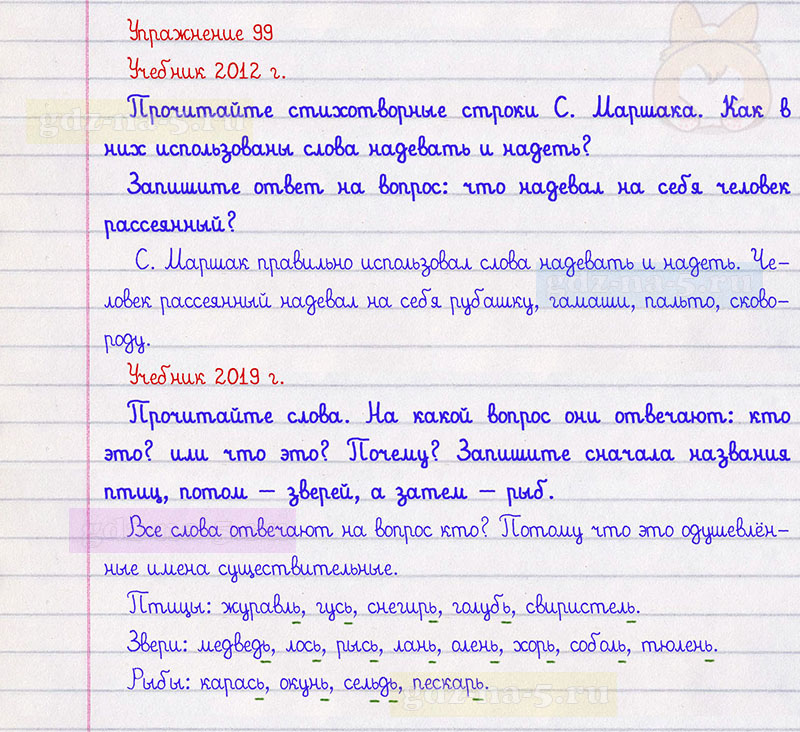 Упражнение 99
Учебник 2012 г.
Прочитайте стихотворные строки С. Маршака. Как в
них использованы слова надевать и надеть?
Запишите ответ на вопрос: что надевал на себя человек
рассеянный?
С. Маршак правильно использовал слова надевать и надеть. Че-
ловек рассеянный надевал на себя рубашку, гамаши, пальто, сково-
роду.
Учебник 2019 г.
Прочитайте слова. На какой вопрос они отвечают: кто
это? или что это? Почему? Запишите сначала названия
птиц, потом – зверей, а затем – рыб.
Все слова отвечают на вопрос кто? Потому что это одушевлён-
ные имена существительные.
Птицы: журавль, гусь, снегирь, голубь, свиристель.
Звери: медведь, лось, рысь, лань, олень, хорь, соболь, тюлень.
Рыбы: карась, окунь, сельдь, пескарь.
gdz-na-5.ru
gdz-na-5.ru
gdz-na-5.ru